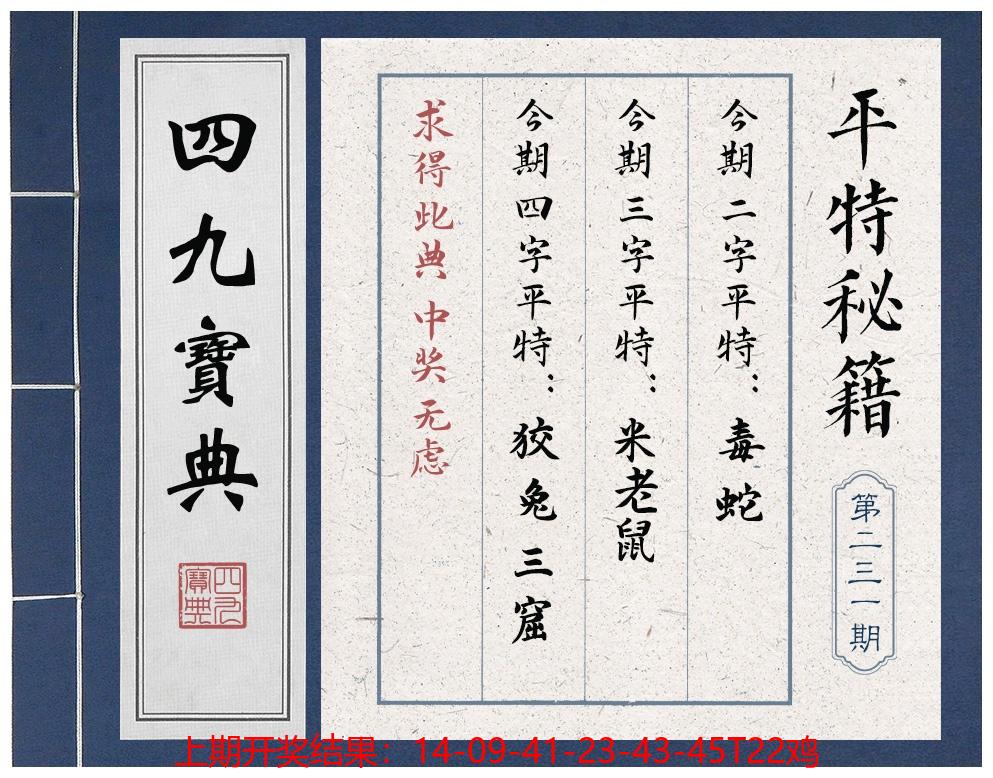 平特秘籍
第二三一期
今期二字平特：毒蛇
今期三字平特：米老鼠
今期四字平特：狡兔三窟
求得此典 中奖无虑
四九寶典
四九
寶典
上期开奖结果：14-09-41-23-43-45T22鸡